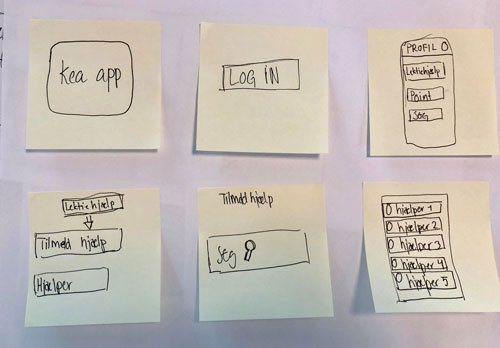 kea app
LOG IN
PROFIL
Lektiehjælp
Point
Søg
Lektiehjælp
Tilmeld hjælp
Hjælper
Tilmeld hjælp
Søg
hjælper 1
hjælper 2
hjælper 3
hjælper 4
hjælper 5